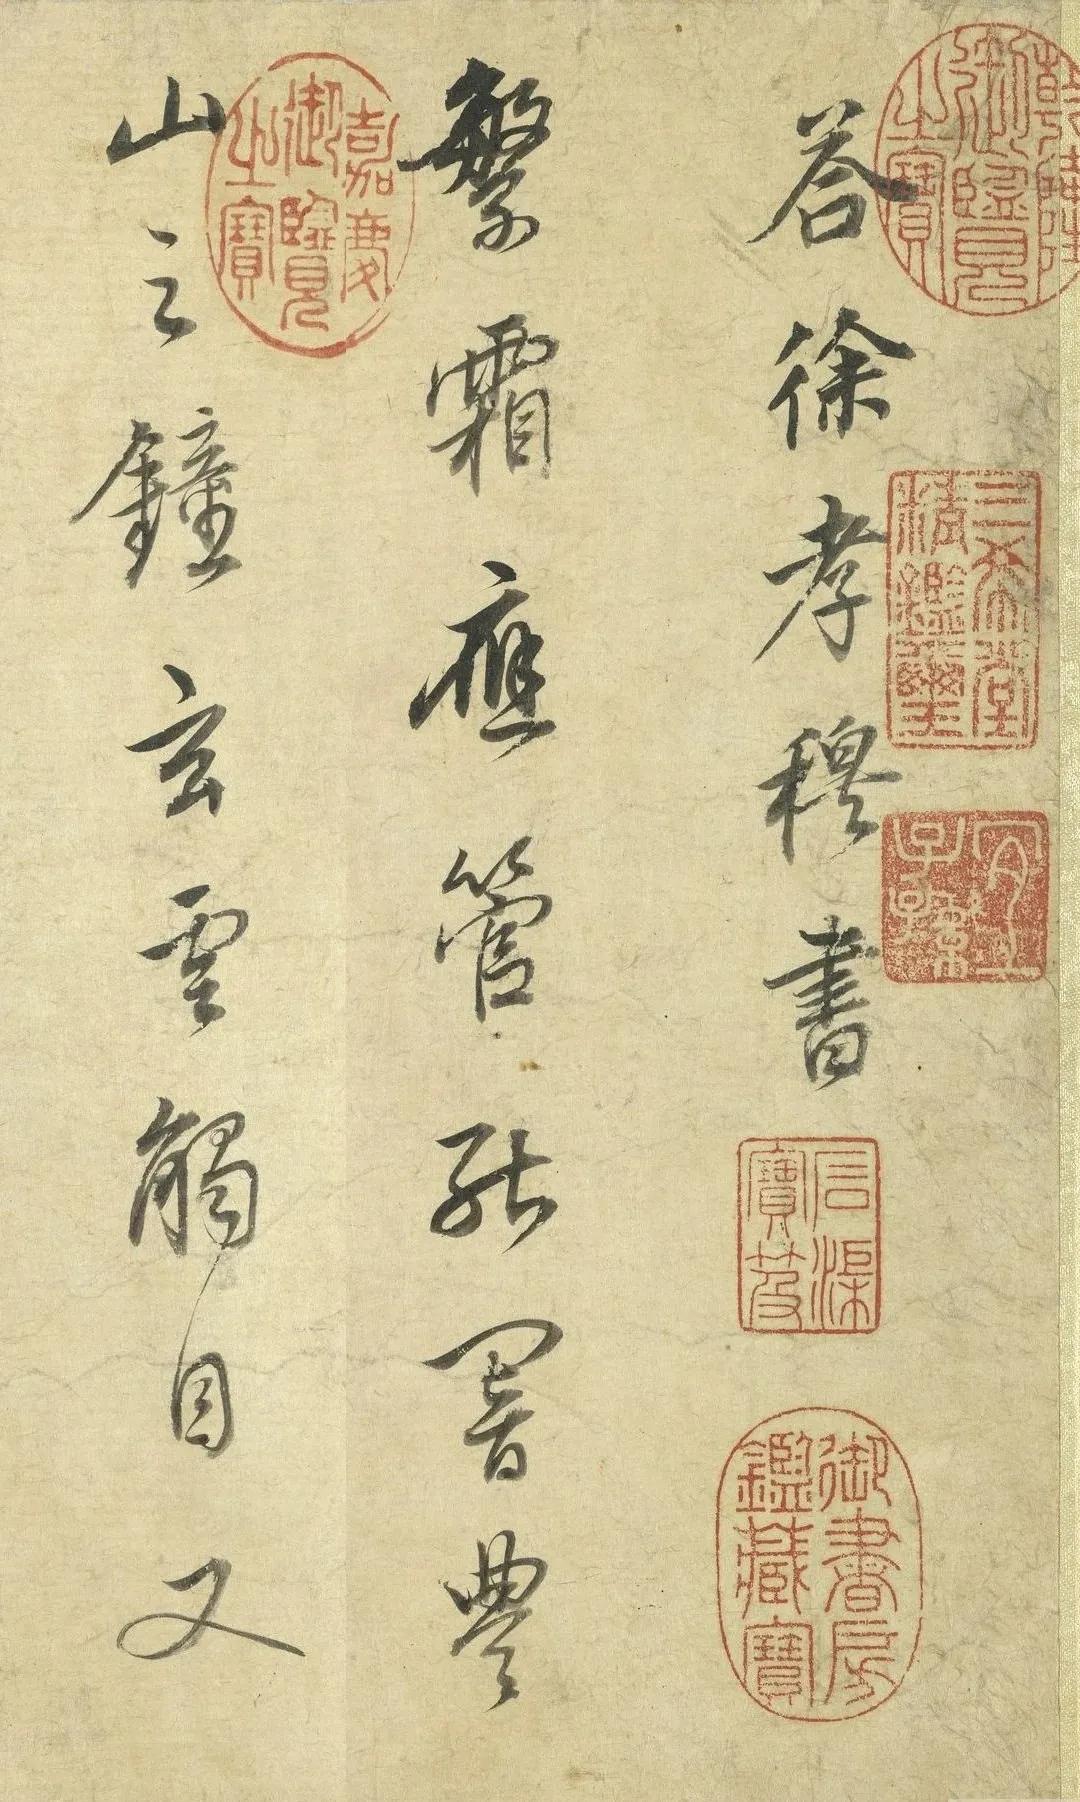 乾隆御覽之寶
三希堂精鑑璽
宜子孫
荅徐孝穆書
石渠寶笈
御書房鑑藏寶
繁霜應管能響豐
嘉慶御覽之寶
山之鐘玄雲觸目又